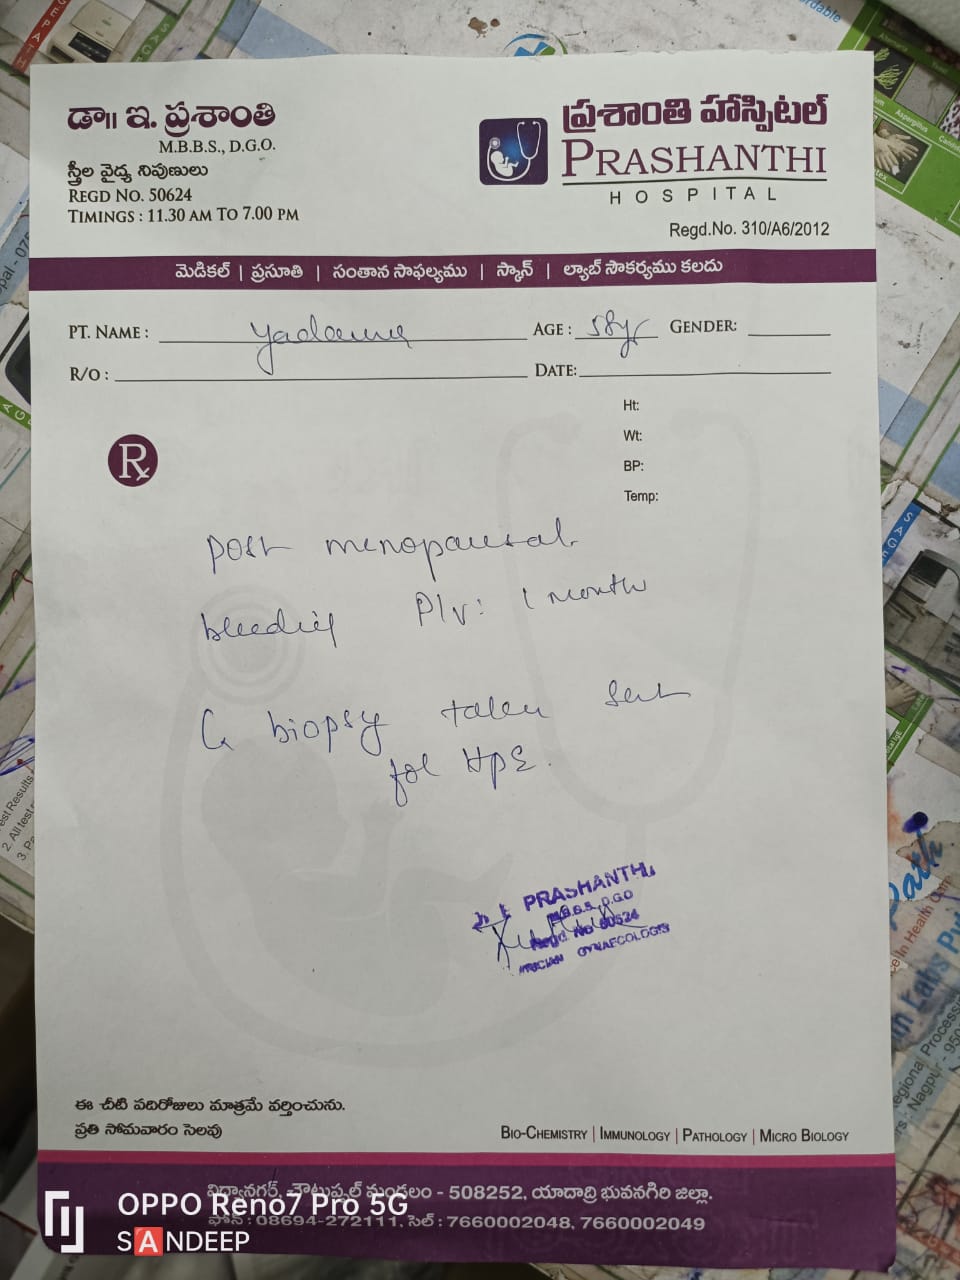 డా॥ ఇ. ప్రశాంతి
M.B.B.S., D.G.O.
స్త్రీల వైద్య నిపుణులు
REGD NO. 50624
TIMINGS : 11.30 AM TO 7.00 PM
ప్రశాంతి హాస్పిటల్
PRASHANTHI
HOSPITAL
Regd.No. 310/A6/2012
మెడికల్ | ప్రసూతి | సంతాన సాఫల్యము | స్కాన్ | ల్యాబ్ సౌకర్యము కలదు
PT. NAME : AGE : 58yr GENDER:
R/O : DATE:
Ht:
Wt:
BP:
Temp:
Rx
post menopausal
bleeding P/v: 1 month
Cx biopsy taken sent
for HPE.
PRASHANTHI
M.B.B.S., D.G.O
Regd. No 50624
GYNAECOLOGIS
ఈ చీటి పదిరోజులు మాత్రమే వర్తించును.
ప్రతి సోమవారం సెలవు
BIO-CHEMISTRY | IMMUNOLOGY | PATHOLOGY | MICRO BIOLOGY
విద్యానగర్, చౌటుప్పల్ మండలం - 508252, యాదాద్రి భువనగిరి జిల్లా.
ఫోన్ : 08694-272111, సెల్ : 7660002048, 7660002049
OPPO Reno7 Pro 5G
SANDEEP